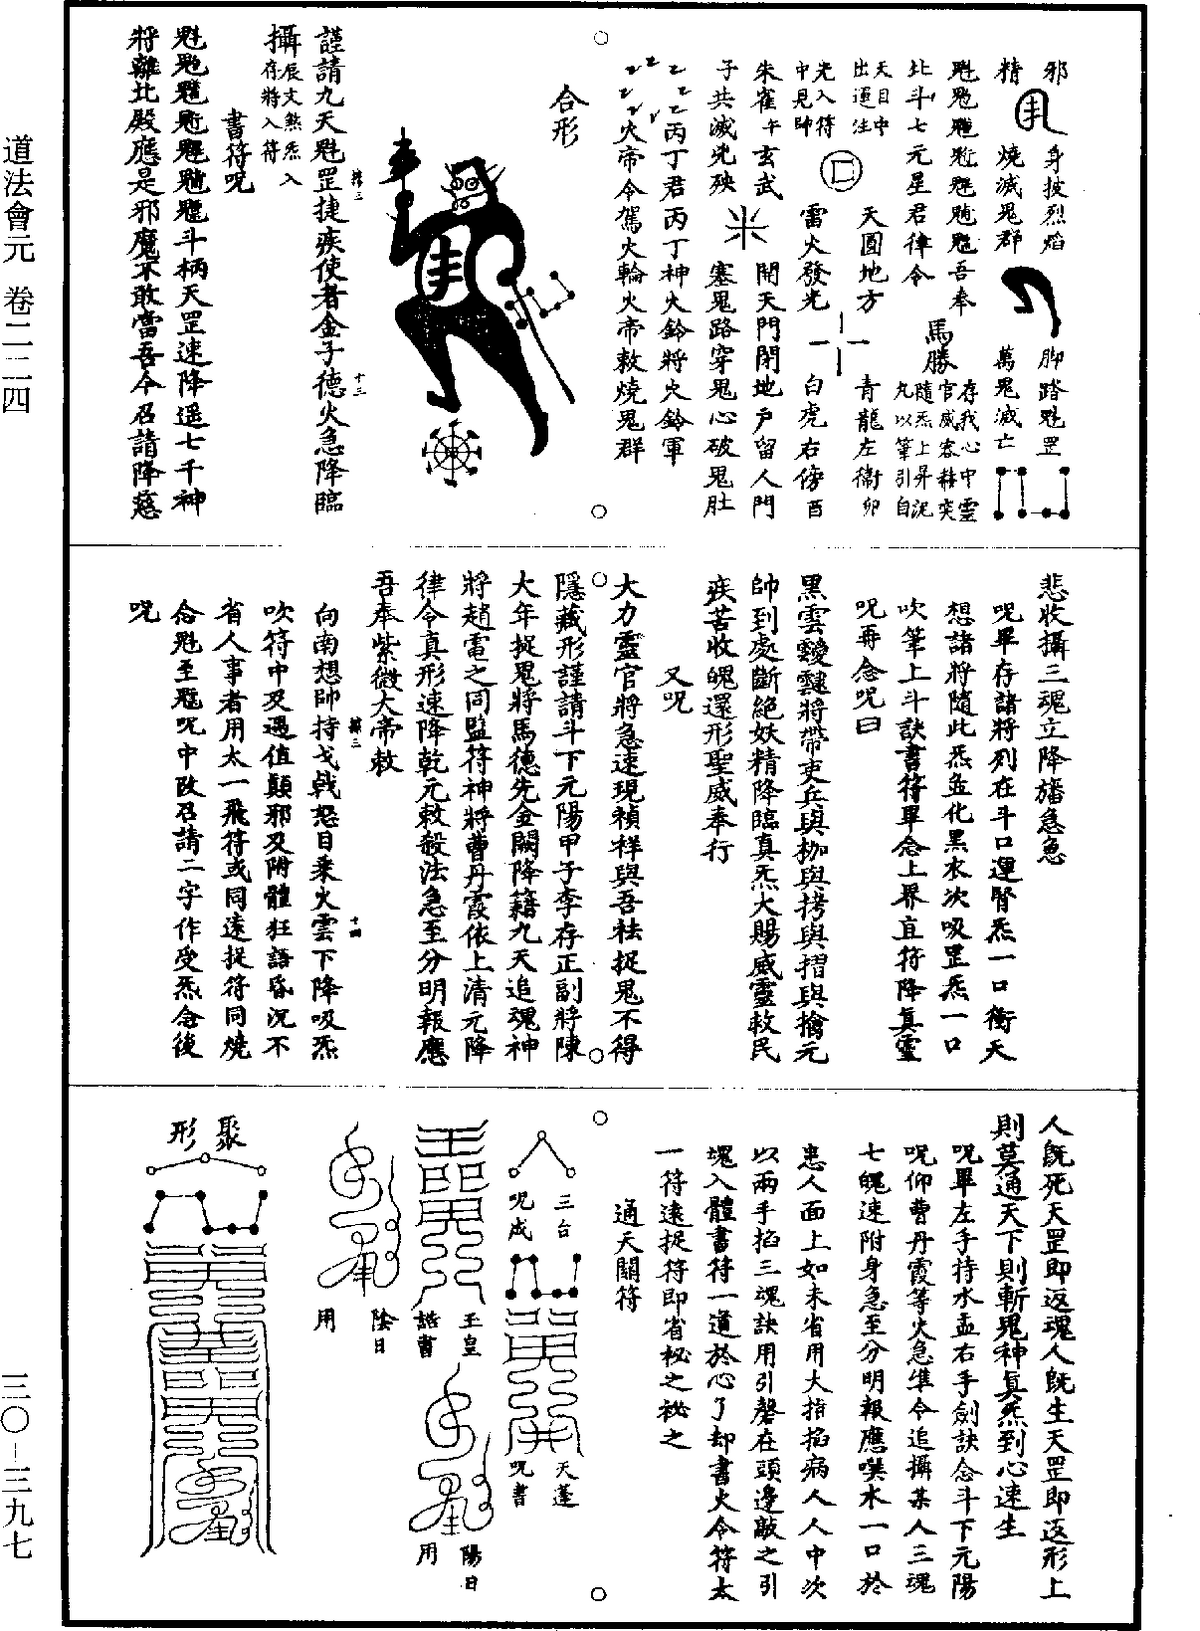 道法會元 卷二二四
三〇-三九七
邪
精
身披烈焰
燒滅鬼群
脚踏魁罡
萬鬼滅亡
吾奉
北斗七元星君律令
馬勝
存我心中靈
官威容赫奕
隨炁上昇泥
丸以筆引自
天目中
出運注
天圓地方
青龍左衛卯
光入符
中見帥
雷火發光
白虎右傍酉
朱雀午玄武
開天門閉地戶留人門
子共滅兇殃
塞鬼路穿鬼心破鬼肚
丙丁君丙丁神火鈴將火鈴軍
火帝令駕火輪火帝敕燒鬼群
合形
謹請九天魁罡捷疾使者金子德火急降臨
攝
辰文煞炁入
存將入符
書符呪
斗柄天罡速降遥七千神
將離北殿應是邪魔不敢當吾今召請降慈
悲收攝三魂立降旛急急
呪畢存諸將列在斗口運腎炁一口衝天
想諸將隨此炁盡化黑水次吸罡炁一口
吹筆上斗訣書符畢念上界直符降真靈
呪再念呪曰
黑雲靉靆將帶吏兵與枷與拷與摺與擒元
帥到處斷絕妖精降臨真炁大賜威靈救民
疾苦收魄還形聖威奉行
又呪
大力靈官將急速現禎祥與吾祛捉鬼不得
隱藏形謹請斗下元陽甲子李存正副將陳
大年捉鬼將馬德先金闕降籍九天追魂神
將趙電之同監符神將曹丹霞依上清元降
律令真形速降乾元敕殺法急至分明報應
吾奉紫微大帝敕
向南想帥持戈戟怒目乘火雲下降吸炁
吹符中及遇值顛邪及附體狂語昏沉不
省人事者用太一飛符或同遠捉符同燒
念魁至魒呪中改召請二字作受炁念後
呪
人既死天罡即返魂人既生天罡即返形上
則莫通天下則斬鬼神真炁到心速生
呪畢左手持水盂右手劍訣念斗下元陽
呪仰曹丹霞等火急準令追攝某人三魂
七魄速附身急至分明報應噀水一口於
患人面上如未省用大指掐病人人中次
以兩手掐三魂訣用引磬在頭邊敲之引
塊入體書符一道於心了却書火令符太
一符遠捉符即省祕之祕之
通天關符
三台
呪成
天蓬
呪書
玉皇
誥書
陽日
用
陰日
用
聚
形